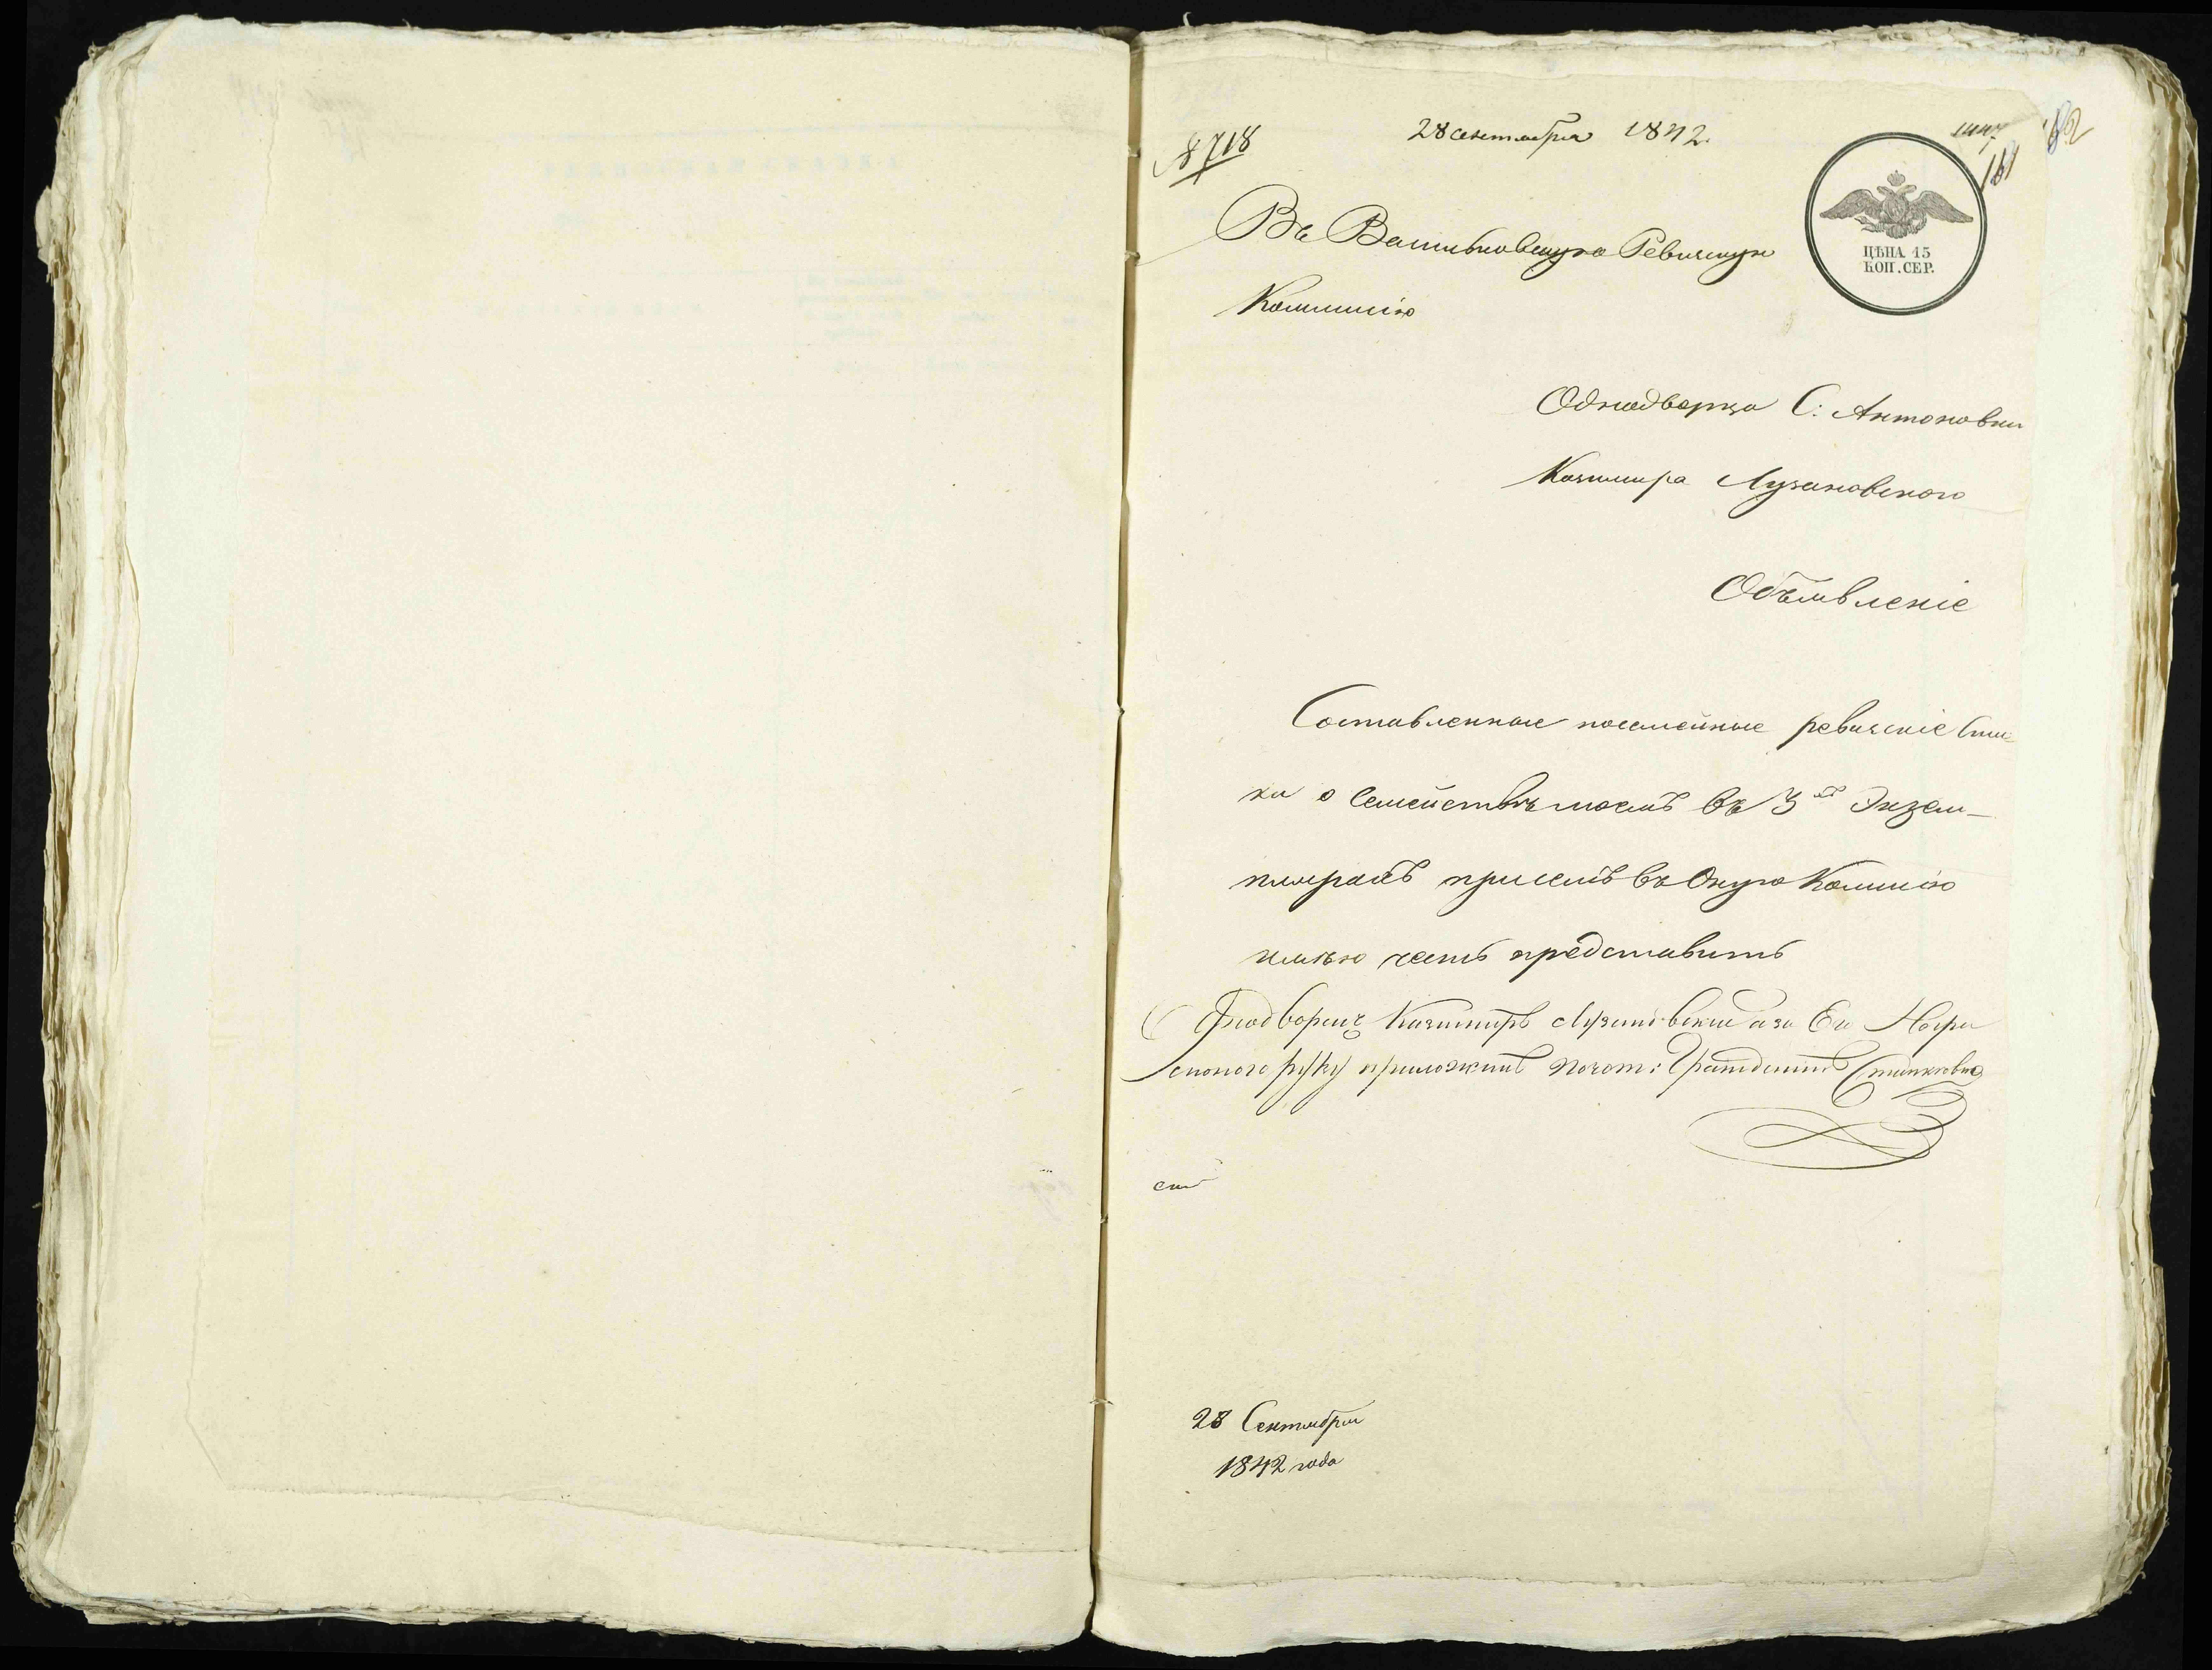 28 сентября 1842.
№ 718
181
182
ЦѢНА 15
КОП. СЕР.
Въ Васильковскую Ревизскую
Коммисію
Однодворца С: Антоновки
Казимира Лузановского
Объявленіе
Составленные посемейные ревизскіе
ки о Семействѣ моемъ въ 3хъ Экзем-
плярахъ присемъ въ Оную Коммисію
имѣю честь представить
Однодворецъ Казимиръ Лузановскій а за Его Негра
мотного руку приложилъ почот: Гражданинъ
28 Сентября
1842 года